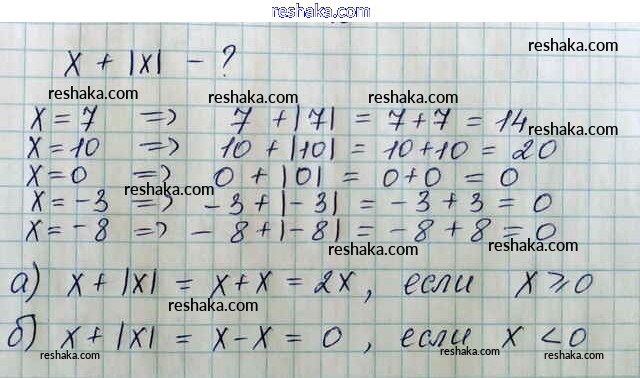 reshaka.com
x + |x| - ?
reshaka.com
reshaka.com
reshaka.com
reshaka.com
x = 7 => 7 + |7| = 7 + 7 = 14
reshaka.com
x = 10 => 10 + |10| = 10 + 10 = 20
x = 0 => 0 + |0| = 0 + 0 = 0
reshaka.com
reshaka.com
reshaka.com
x = -3 => -3 + |-3| = -3 + 3 = 0
x = -8 => -8 + |-8| = -8 + 8 = 0
reshaka.com
reshaka.com
а) x + |x| = x + x = 2x, если x ≥ 0
reshaka.com
б) x + |x| = x - x = 0, если x < 0
reshaka.com
reshaka.com
reshaka.com